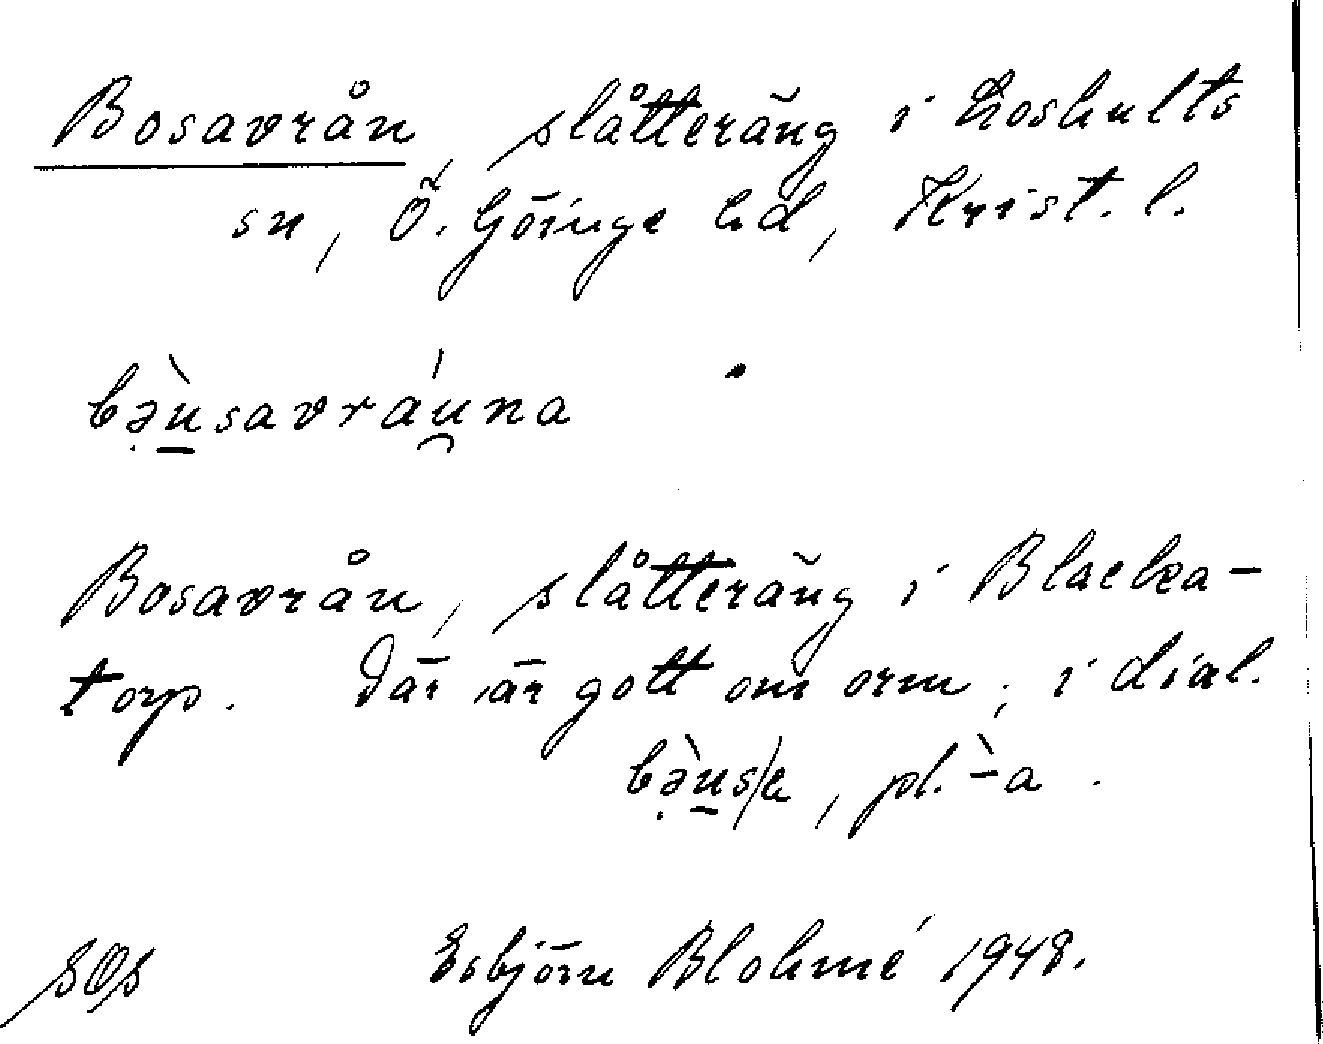 Bosavrån, slåtteräng i Loshults
sn, Ö. Göinge hd, Krist. l.
bə̣̀u̲savráu̯na
Bosavrån, slåtteräng i Blacka-
torp. Där är gott om orm; i dial.
bə̣̀u̲s/e, pl. -̀a.
SOs Esbjörn Blohmé 1948.